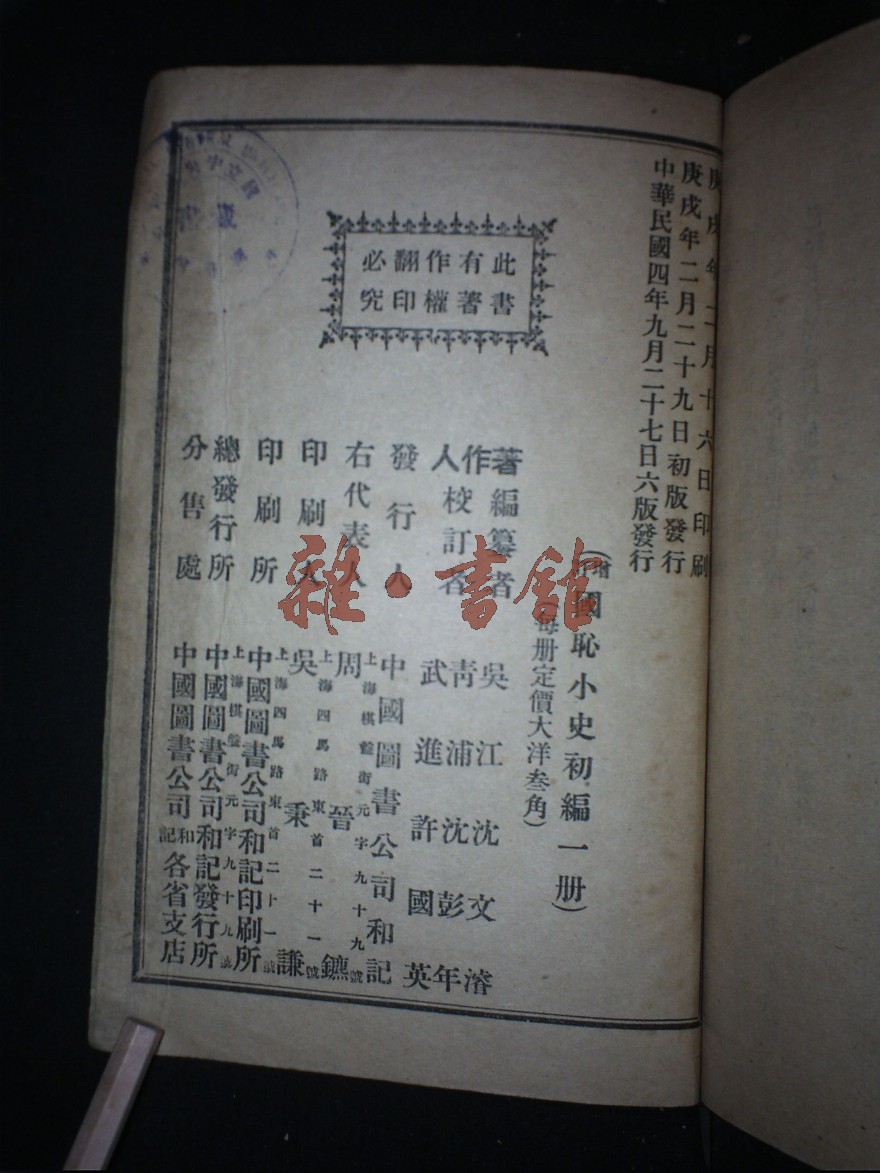 庚戌年二月十六日印刷
庚戌年二月二十九日初版發行
中華民國四年九月二十七日六版發行
此書
有著
作權
翻印
必究
(增訂國恥小史初編一册)
(每册定價大洋叁角)
著作人
編纂者 吳江沈文濬
校訂者 青浦沈彭年
武進許國英
發行人 中國圖書公司和記
上海棋盤街元字九十九號
右代表人 周晉鑣
上海四馬路東首二十一號
印刷人 吳秉謙
上海四馬路東首二十一號
印刷所 中國圖書公司和記印刷所
上海棋盤街元字九十九號
總發行所 中國圖書公司和記發行所
分售處 中國圖書公司和記各省支店
雜·書館